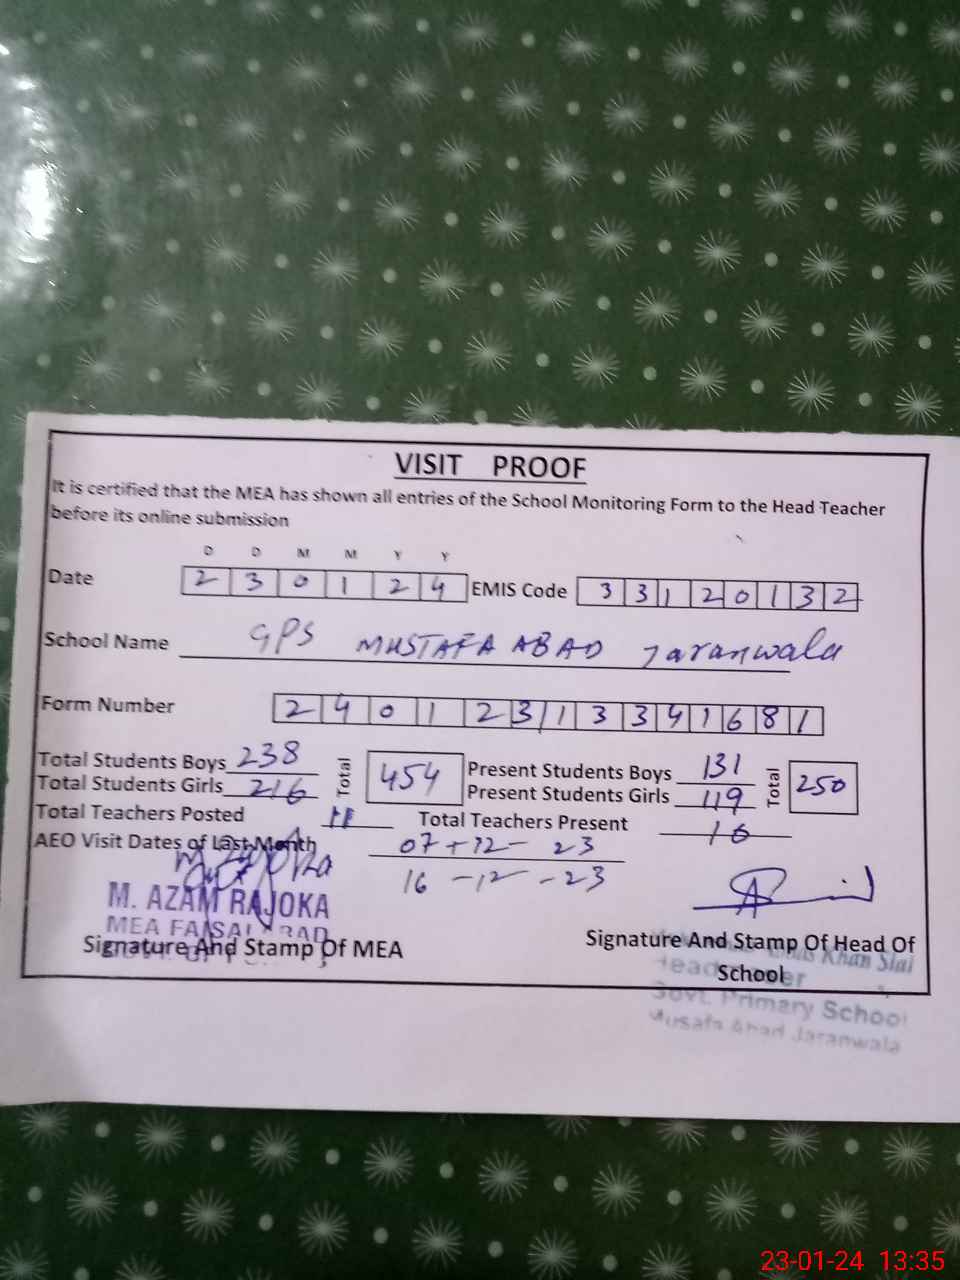 VISIT PROOF
It is certified that the MEA has shown all entries of the School Monitoring Form to the Head Teacher
before its online submission
D D M M Y Y
Date 2 3 0 1 2 4 EMIS Code 3 3 1 2 0 1 3 2
School Name GPS MUSTAFA ABAD Jaranwala
Form Number 2 4 0 1 2 3 1 3 3 4 1 6 8 1
Total Students Boys 238 Total 454 Present Students Boys 131 Total 250
Total Students Girls 216 Present Students Girls 119
Total Teachers Posted 11 Total Teachers Present 10
AEO Visit Dates of Last Month 07-12-23
16-12-23
M. AZAM RAJOKA
MEA FAISALABAD
Signature And Stamp Of MEA
Signature And Stamp Of Head Of
School
Khan Sial
Govt. Primary School
Musafa Abad Jaranwala
23-01-24 13:35